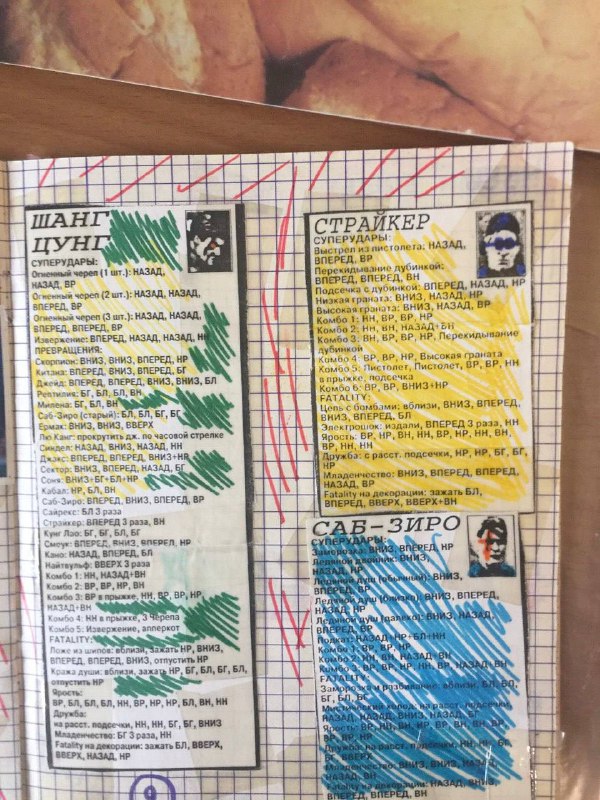 ШАНГ
ЦУНГ
СУПЕРУДАРЫ:
Огненный череп (1 шт.): НАЗАД,
НАЗАД, ВР
Огненный череп (2 шт.): НАЗАД, НАЗАД,
ВПЕРЕД, ВР
Огненный череп (3 шт.): НАЗАД, НАЗАД,
ВПЕРЕД, ВПЕРЕД, ВР
Извержение: ВПЕРЕД, НАЗАД, НАЗАД, НН
ПРЕВРАЩЕНИЯ:
Скорпион: ВНИЗ, ВНИЗ, ВПЕРЕД, НР
Китана: ВПЕРЕД, ВНИЗ, ВПЕРЕД, БГ
Джейд: ВПЕРЕД, ВПЕРЕД, ВНИЗ, ВНИЗ, БЛ
Рептилия: БГ, БЛ, БЛ, ВН
Милена: БГ, БЛ, ВН
Саб-Зиро (старый): БЛ, БЛ, БГ, БГ
Ермак: ВНИЗ, ВНИЗ, ВВЕРХ
Лю Канг: прокрутить дж. по часовой стрелке
Синдел: НАЗАД, ВНИЗ, НАЗАД, НН
Джакс: ВПЕРЕД, ВПЕРЕД, ВНИЗ+НР
Сектор: ВНИЗ, ВПЕРЕД, НАЗАД, БГ
Соня: ВНИЗ+БГ+БЛ+НР
Кабал: НР, БЛ, ВН
Саб-Зиро: ВПЕРЕД, ВНИЗ, ВПЕРЕД, ВР
Сайрекс: БЛ 3 раза
Страйкер: ВПЕРЕД 3 раза, ВН
Кунг Лао: БГ, БГ, БЛ, БГ
Смоук: ВПЕРЕД, ВНИЗ, ВПЕРЕД, НР
Кано: НАЗАД, ВПЕРЕД, БЛ
Найтвульф: ВВЕРХ 3 раза
Комбо 1: НН, НАЗАД+ВН
Комбо 2: ВР, ВР, НР, ВН
Комбо 3: ВР в прыжке, НН, ВР, ВР, НР,
НАЗАД+ВН
Комбо 4: НН в прыжке, 3 Черепа
Комбо 5: Извержение, апперкот
FATALITY:
Ложе из шипов: вблизи, зажать НР, ВНИЗ,
ВПЕРЕД, ВПЕРЕД, ВНИЗ, отпустить НР
Кража души: вблизи, зажать НР, БГ, БЛ, БГ, БЛ,
отпустить НР
Ярость:
ВР, БЛ, БЛ, БЛ, НН, ВР, НР, НР, БЛ, ВН, НН
Дружба:
на расст. подсечки, НН, НН, БГ, БГ, ВНИЗ
Младенчество: БГ 3 раза, НН
Fatality на декорации: зажать БЛ, ВВЕРХ,
ВВЕРХ, НАЗАД, НР
СТРАЙКЕР
СУПЕРУДАРЫ:
Выстрел из пистолета: НАЗАД,
ВПЕРЕД, ВР
Перекидывание дубинкой:
ВПЕРЕД, ВПЕРЕД, ВН
Подсечка с дубинкой: ВПЕРЕД, НАЗАД, НР
Низкая граната: ВНИЗ, НАЗАД, НР
Высокая граната: ВНИЗ, НАЗАД, ВР
Комбо 1: НН, ВР, ВР, НР
Комбо 2: НН, НН, НАЗАД+ВН
Комбо 3: ВН, ВР, ВР, НР, Перекидывание
дубинкой
Комбо 4: ВР, ВР, НР, Высокая граната
Комбо 5: Пистолет, Пистолет, ВР, ВР, НН
в прыжке, подсечка
Комбо 6: ВР, ВР, ВНИЗ+НР
FATALITY:
Цепь с бомбами: вблизи, ВНИЗ, ВПЕРЕД,
ВНИЗ, ВПЕРЕД, БЛ
Электрошок: издали, ВПЕРЕД 3 раза, НН
Ярость: ВР, НР, ВН, НН, ВР, НР, НН, ВН,
ВР, НН, НН
Дружба: с расст. подсечки, НР, НР, БГ, БГ,
НР
Младенчество: ВНИЗ, ВПЕРЕД, ВПЕРЕД,
НАЗАД, ВР
Fatality на декорации: зажать БЛ,
ВПЕРЕД, ВВЕРХ, ВВЕРХ+ВН
САБ-ЗИРО
СУПЕРУДАРЫ:
Заморозка: ВНИЗ, ВПЕРЕД, НР
Ледяной двойник: ВНИЗ,
НАЗАД, НР
Ледяной душ (обычный): ВНИЗ,
ВПЕРЕД, ВР
Ледяной душ (близко): ВНИЗ, ВПЕРЕД,
НАЗАД, НР
Ледяной душ (далеко): ВНИЗ, НАЗАД,
ВПЕРЕД, ВР
Подкат: НАЗАД+НР+БЛ+НН
Комбо 1: ВР, ВР, НР
Комбо 2: НН, ВН, НАЗАД+ВН
Комбо 3: ВР, ВР, НР, НН, ВР, НАЗАД, ВН
FATALITY:
Заморозка и разбивание: вблизи, БЛ, БЛ,
БГ, БЛ, БГ
Мистический холод: на расст. подсечки,
НАЗАД, НАЗАД, ВНИЗ, НАЗАД, БГ
Дружба: на расст. подсечки,
Младенчество: ВНИЗ,
НАЗАД, ВН
Fatality на декорации: НАЗАД, ВНИЗ,